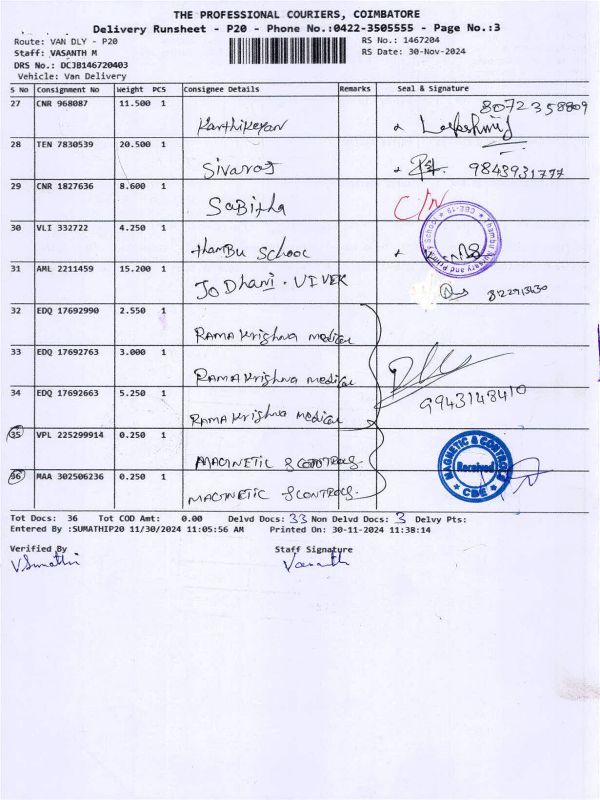 THE PROFESSIONAL COURIERS, COIMBATORE
Delivery Runsheet - P20 - Phone No.:0422-3505555 - Page No.:3
Route: VAN DLY - P20 RS No.: 1467204
Staff: VASANTH M RS Date: 30-Nov-2024
DRS No.: DCJB146720403
Vehicle: Van Delivery
S No Consignment No Weight PCS Consignee Details Remarks Seal & Signature
27 CNR 968087 11.500 1 Karthikeyan 8072358809
28 TEN 7830539 20.500 1 Sivaraj 9843931777
29 CNR 1827636 8.600 1 Sabitha C/N
30 VLI 332722 4.250 1 thamBu School Thambu Nursery and Primary School CBE-19
31 AML 2211459 15.200 1 Jo Dhani . VIVEK
32 EDQ 17692990 2.550 1 RAMA Krishna medical
33 EDQ 17692763 3.000 1 RAMA Krishna medical
34 EDQ 17692663 5.250 1 RAMA Krishna medical 9943148410
35 VPL 225299914 0.250 1 MAGNETIC & CONTROLS. MAGNETIC & CONTROLS Received CBE
36 MAA 302506236 0.250 1 MAGNETIC & CONTROLS.
Tot Docs: 36 Tot COD Amt: 0.00 Delvd Docs: 33 Non Delvd Docs: 3 Delvy Pts:
Entered By :SUMATHIP20 11/30/2024 11:05:56 AM Printed On: 30-11-2024 11:38:14
Verified By Staff Signature
VSumathi Vasanth